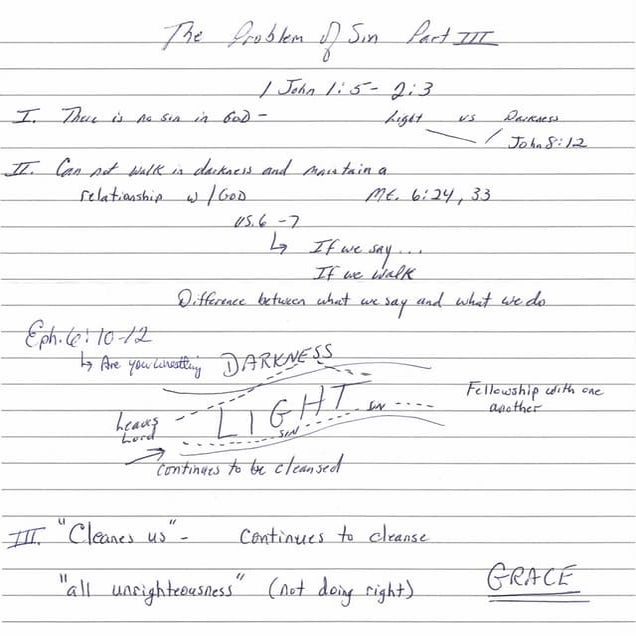 The Problem of Sin Part III
1 John 1:5 - 2:3
I. There is no sin in GOD - Light vs Darkness
John 8:12
II. Can not walk in darkness and maintain a
relationship w/GOD Mt. 6:24, 33
vs. 6 - 7
↳ If we say...
If we walk
Difference between what we say and what we do
Eph. 6:10-12
↳ Are you wrestling DARKNESS
LIGHT SIN Fellowship with one
another
Leaves
Lord SIN
Continues to be cleansed
III. "Cleanes us" - Continues to cleanse
"all unrighteousness" (not doing right) GRACE